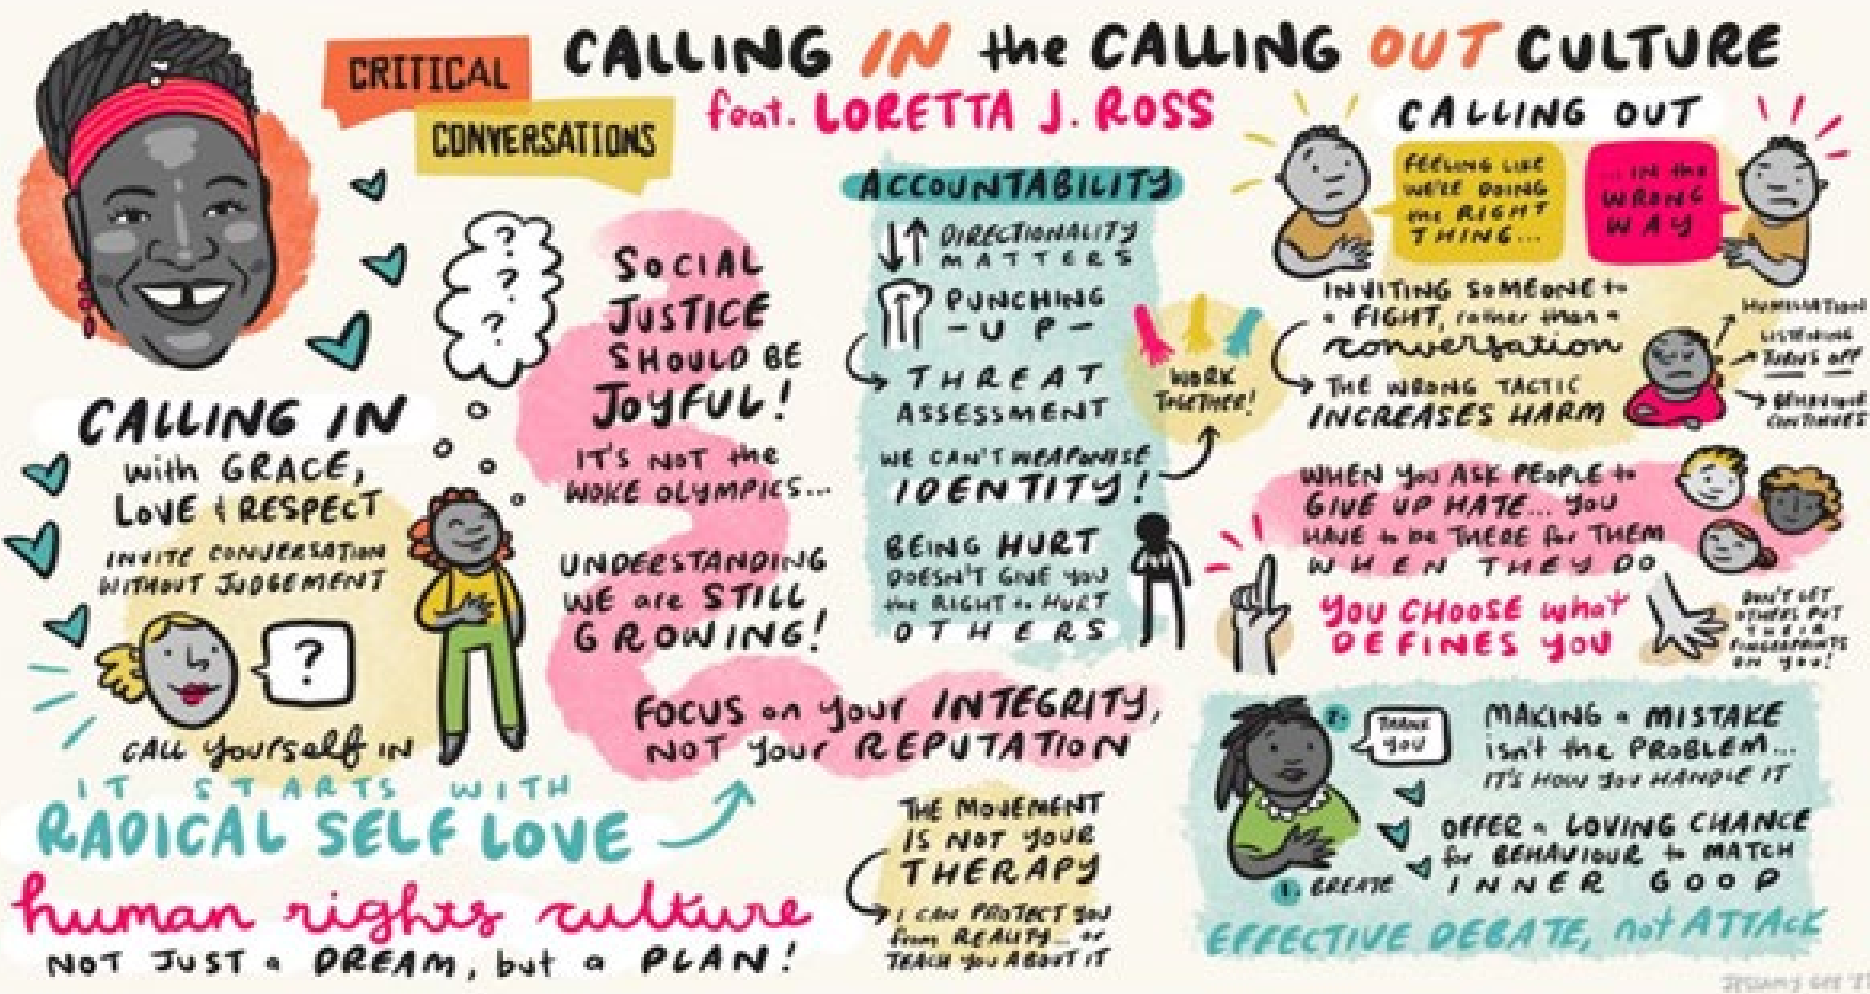 CRITICAL
CONVERSATIONS
CALLING IN the CALLING OUT CULTURE
feat. LORETTA J. ROSS
CALLING IN
with GRACE,
LOVE + RESPECT
INVITE CONVERSATION
WITHOUT JUDGEMENT
?
CALL yourself IN
IT STARTS WITH
RADICAL SELF LOVE
human rights culture
NOT JUST a DREAM, but a PLAN!
?
?
?
SOCIAL
JUSTICE
SHOULD BE
JOYFUL!
IT'S NOT the
WOKE OLYMPICS...
UNDERSTANDING
WE are STILL
GROWING!
FOCUS on your INTEGRITY,
NOT your REPUTATION
ACCOUNTABILITY
DIRECTIONALITY
MATTERS
PUNCHING
- UP -
THREAT
ASSESSMENT
WE CAN'T WEAPONISE
IDENTITY!
WORK
TOGETHER!
BEING HURT
DOESN'T GIVE YOU
the RIGHT to HURT
OTHERS
THE MOVEMENT
IS NOT YOUR
THERAPY
I CAN PROTECT YOU
from REALITY... or
TEACH you ABOUT IT
CALLING OUT
FEELING LIKE
WE'RE DOING
the RIGHT
THING...
...IN the
WRONG
WAY
INVITING SOMEONE to
a FIGHT, rather than a
conversation
THE WRONG TACTIC
INCREASES HARM
HUMILIATION
LISTENING
TURNS OFF
BEHAVIOUR
CONTINUES
WHEN you ASK PEOPLE to
GIVE UP HATE... YOU
HAVE to be THERE for THEM
WHEN THEY DO
YOU CHOOSE what
DEFINES YOU
DON'T LET
OTHERS PUT
THEIR
FINGERPRINTS
ON YOU!
2.
THANK
YOU
1. BREATE
MAKING a MISTAKE
isn't the PROBLEM...
IT'S HOW YOU HANDLE IT
OFFER a LOVING CHANCE
for BEHAVIOUR to MATCH
INNER GOOD
EFFECTIVE DEBATE, not ATTACK